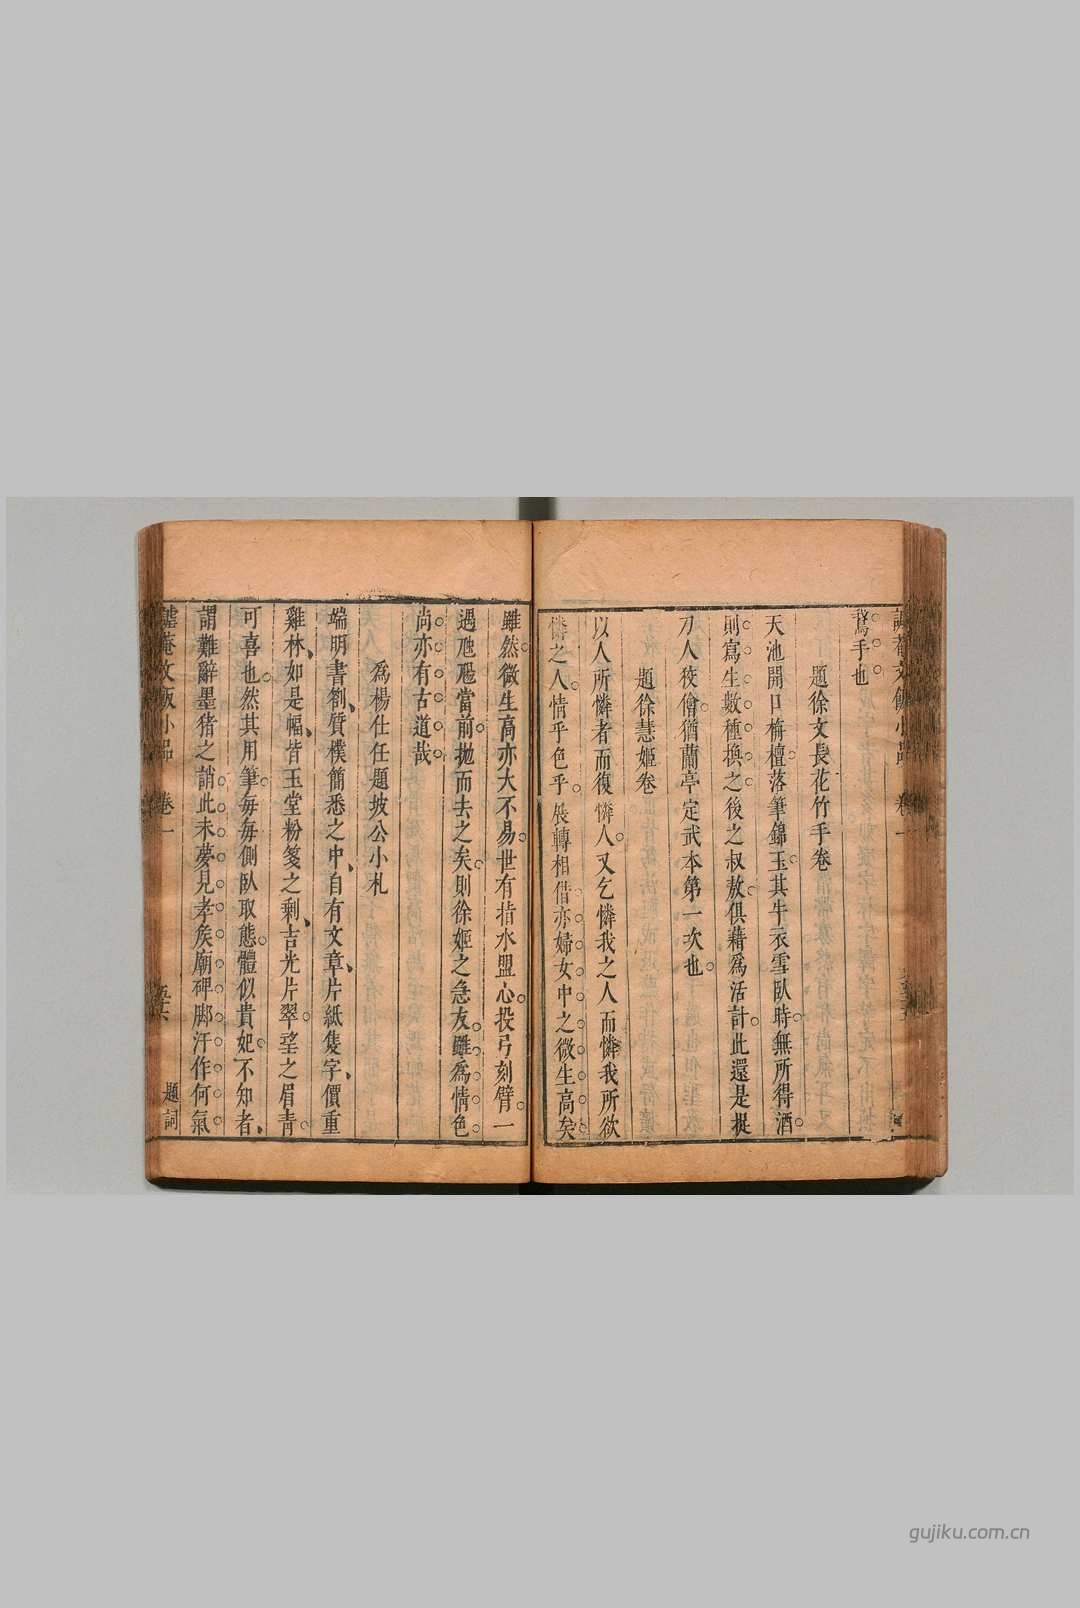 謔菴文飯小品 卷一
驚手也
題徐文長花竹手卷
天池開口栴檀落筆錦玉其牛衣雪臥時無所得酒
則寫生數種換之後之叔敖俱藉爲活計此還是提
刀人狡儈猶蘭亭定武本第一次也
題徐慧姬卷
以人所憐者而復憐人又乞憐我之人而憐我所欲
憐之人情乎色乎展轉相借亦婦女中之微生高矣
雖然微生高亦大不易世有指水盟心投弓刻臂一
遇虺虺當前拋而去之矣則徐姬之急友雖爲情色
尚亦有古道哉
爲楊仕任題坡公小札
端明書劄質樸簡悉之中自有文章片紙隻字價重
雞林如是幅皆玉堂粉箋之剩吉光片翠望之眉青
可喜也然其用筆每每側臥取態體似貴妃不知者
謂難辭墨猪之誚此未夢見孝矦廟碑脚汗作何氣
謔菴文飯小品 卷一 五六 題詞
gujiku.com.cn